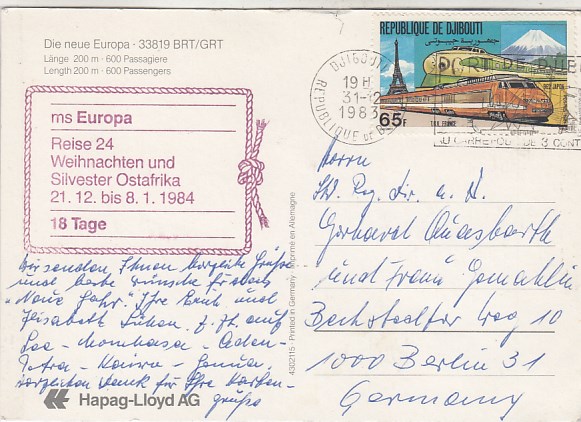 Die neue Europa · 33819 BRT/GRT
Länge 200 m · 600 Passagiere
Length 200 m · 600 Passengers
ms Europa
Reise 24
Weihnachten und
Silvester Ostafrika
21. 12. bis 8. 1. 1984
18 Tage
Wir senden Ihnen herzliche Grüße
und beste Wünsche für das
"Neue Jahr". Ihre Erich und
Elisabeth z. Zt. auf
See - Mombasa - Aden -
Petra - Kairo - Genua.
herzlichen Dank für Ihre Karten-
grüße
Hapag-Lloyd AG
4302115 · Printed in Germany · Imprimé en Allemagne
REPUBLIQUE DE DJIBOUTI
جمهورية جيبوتي
T.G.V. FRANCE
JAPON
65F
DJIBOUTI
19 H
31-12
1983
REPUBLIQUE DE
PORT DE
AU CARREFOUR DE 3 CONT
Herrn
Ltd. Reg. Dir. a. D.
Gerhard
und Frau Gemahlin
Bechstedter Weg 10
1000 Berlin 31
Germany